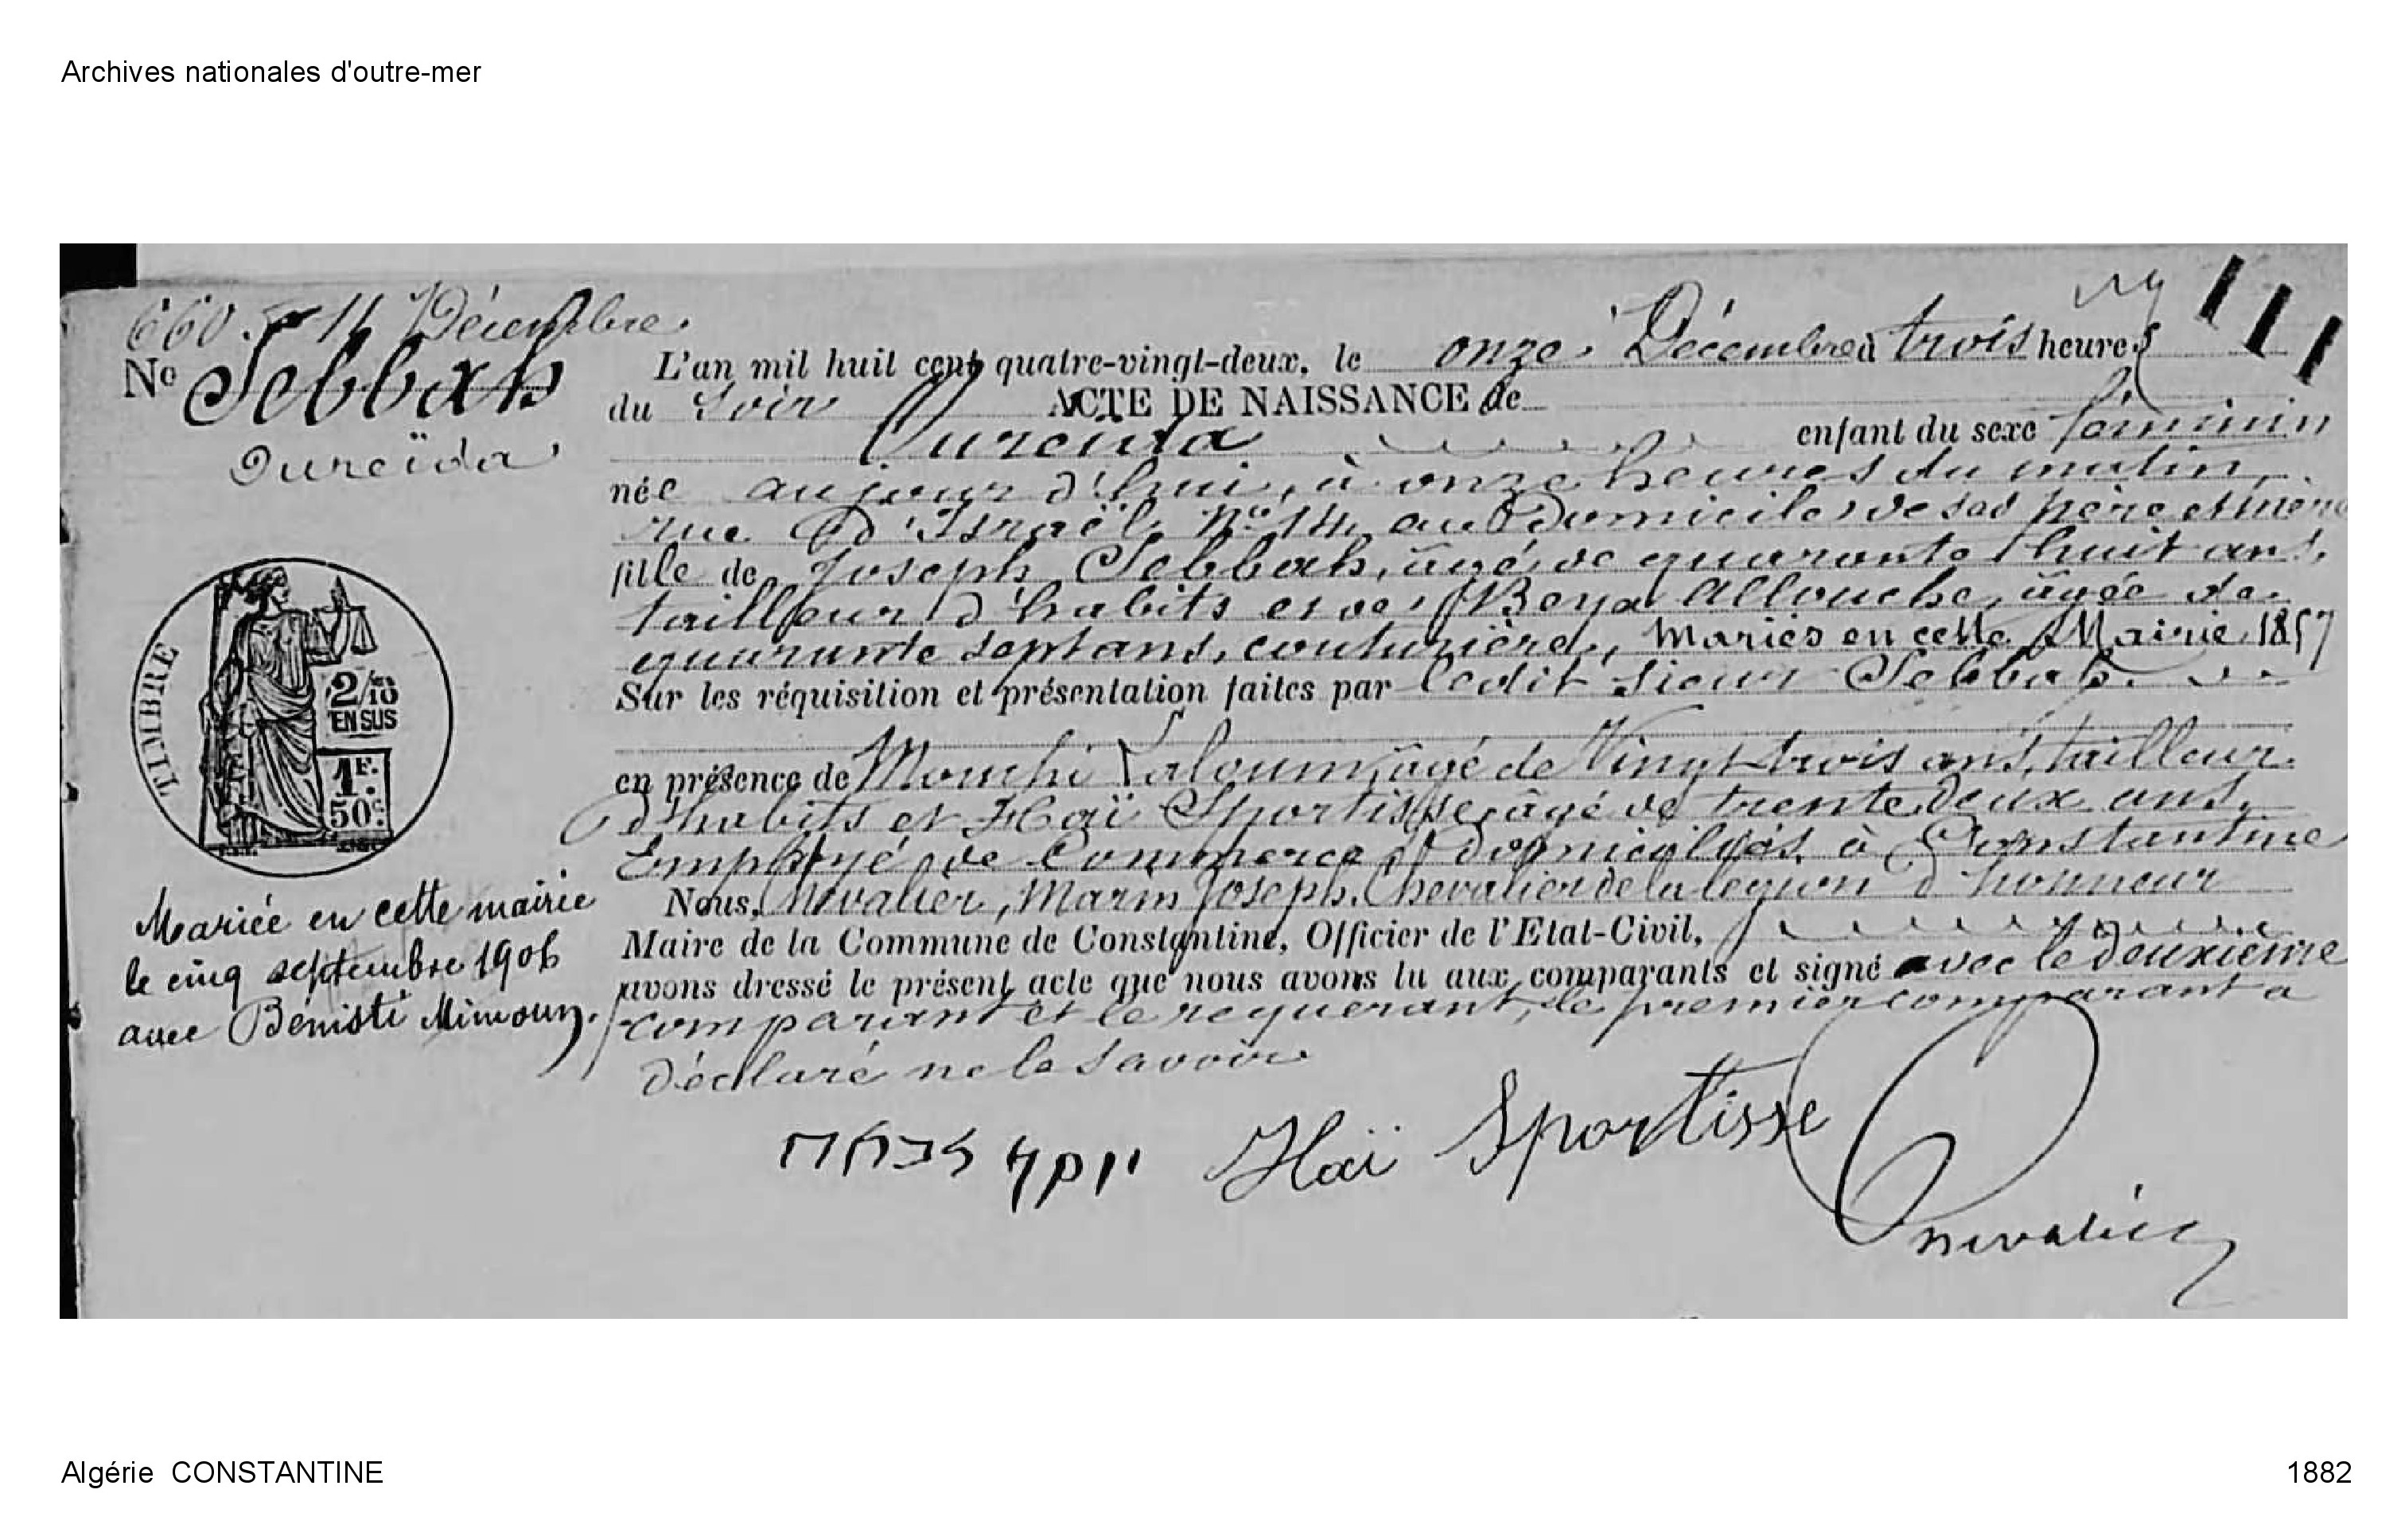 Archives nationales d'outre-mer
660. 11 Décembre
No Sebbah
Oureïda
TIMBRE
2/10 EN SUS
1F. 50c.
Mariée en cette mairie
le cinq septembre 1906
avec Bénisti Mimoun.
L'an mil huit cent quatre-vingt-deux, le onze Décembre à trois heures
du soir ACTE DE NAISSANCE de
Oureïda enfant du sexe féminin
née aujourd'hui, à onze heures du matin,
rue d'Israël, No 14, au domicile de ses père et mère
fille de Joseph Sebbah, âgé de quarante huit ans,
tailleur d'habits et de Beya Allouche, âgée de
quarante sept ans, couturière, mariés en cette Mairie, 1857
Sur les réquisition et présentation faites par ledit sieur Sebbah.
en présence de Mouchi Laloum, âgé de Vingt trois ans, tailleur
d'habits et Haï Sportisse, âgé de trente deux ans,
Employé de Commerce, domiciliés à Constantine
Nous, Chevalier, Marin Joseph, Chevalier de la légion d'honneur
Maire de la Commune de Constantine, Officier de l'Etat-Civil,
avons dressé le présent acte que nous avons lu aux comparants et signé avec le deuxième
comparant et le requérant, le premier comparant a
déclaré ne le savoir
Haï Sportisse
Chevalier
Algérie CONSTANTINE
1882